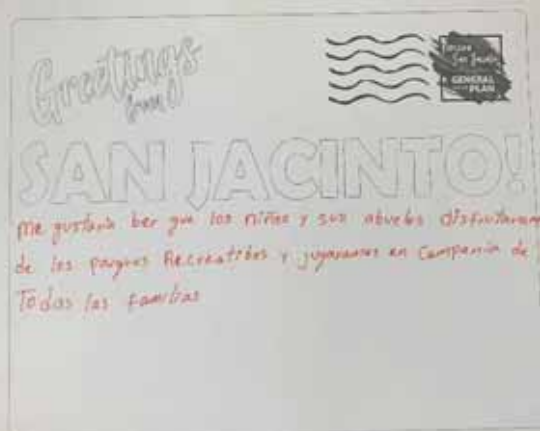 Greetings
from
San Jacinto
GENERAL
PLAN
SAN JACINTO!
me gustaria ber que los niños y sus abuelos disfrutaran
de los parques Recreatibos y jugaramos en Compania de
Todas las familias